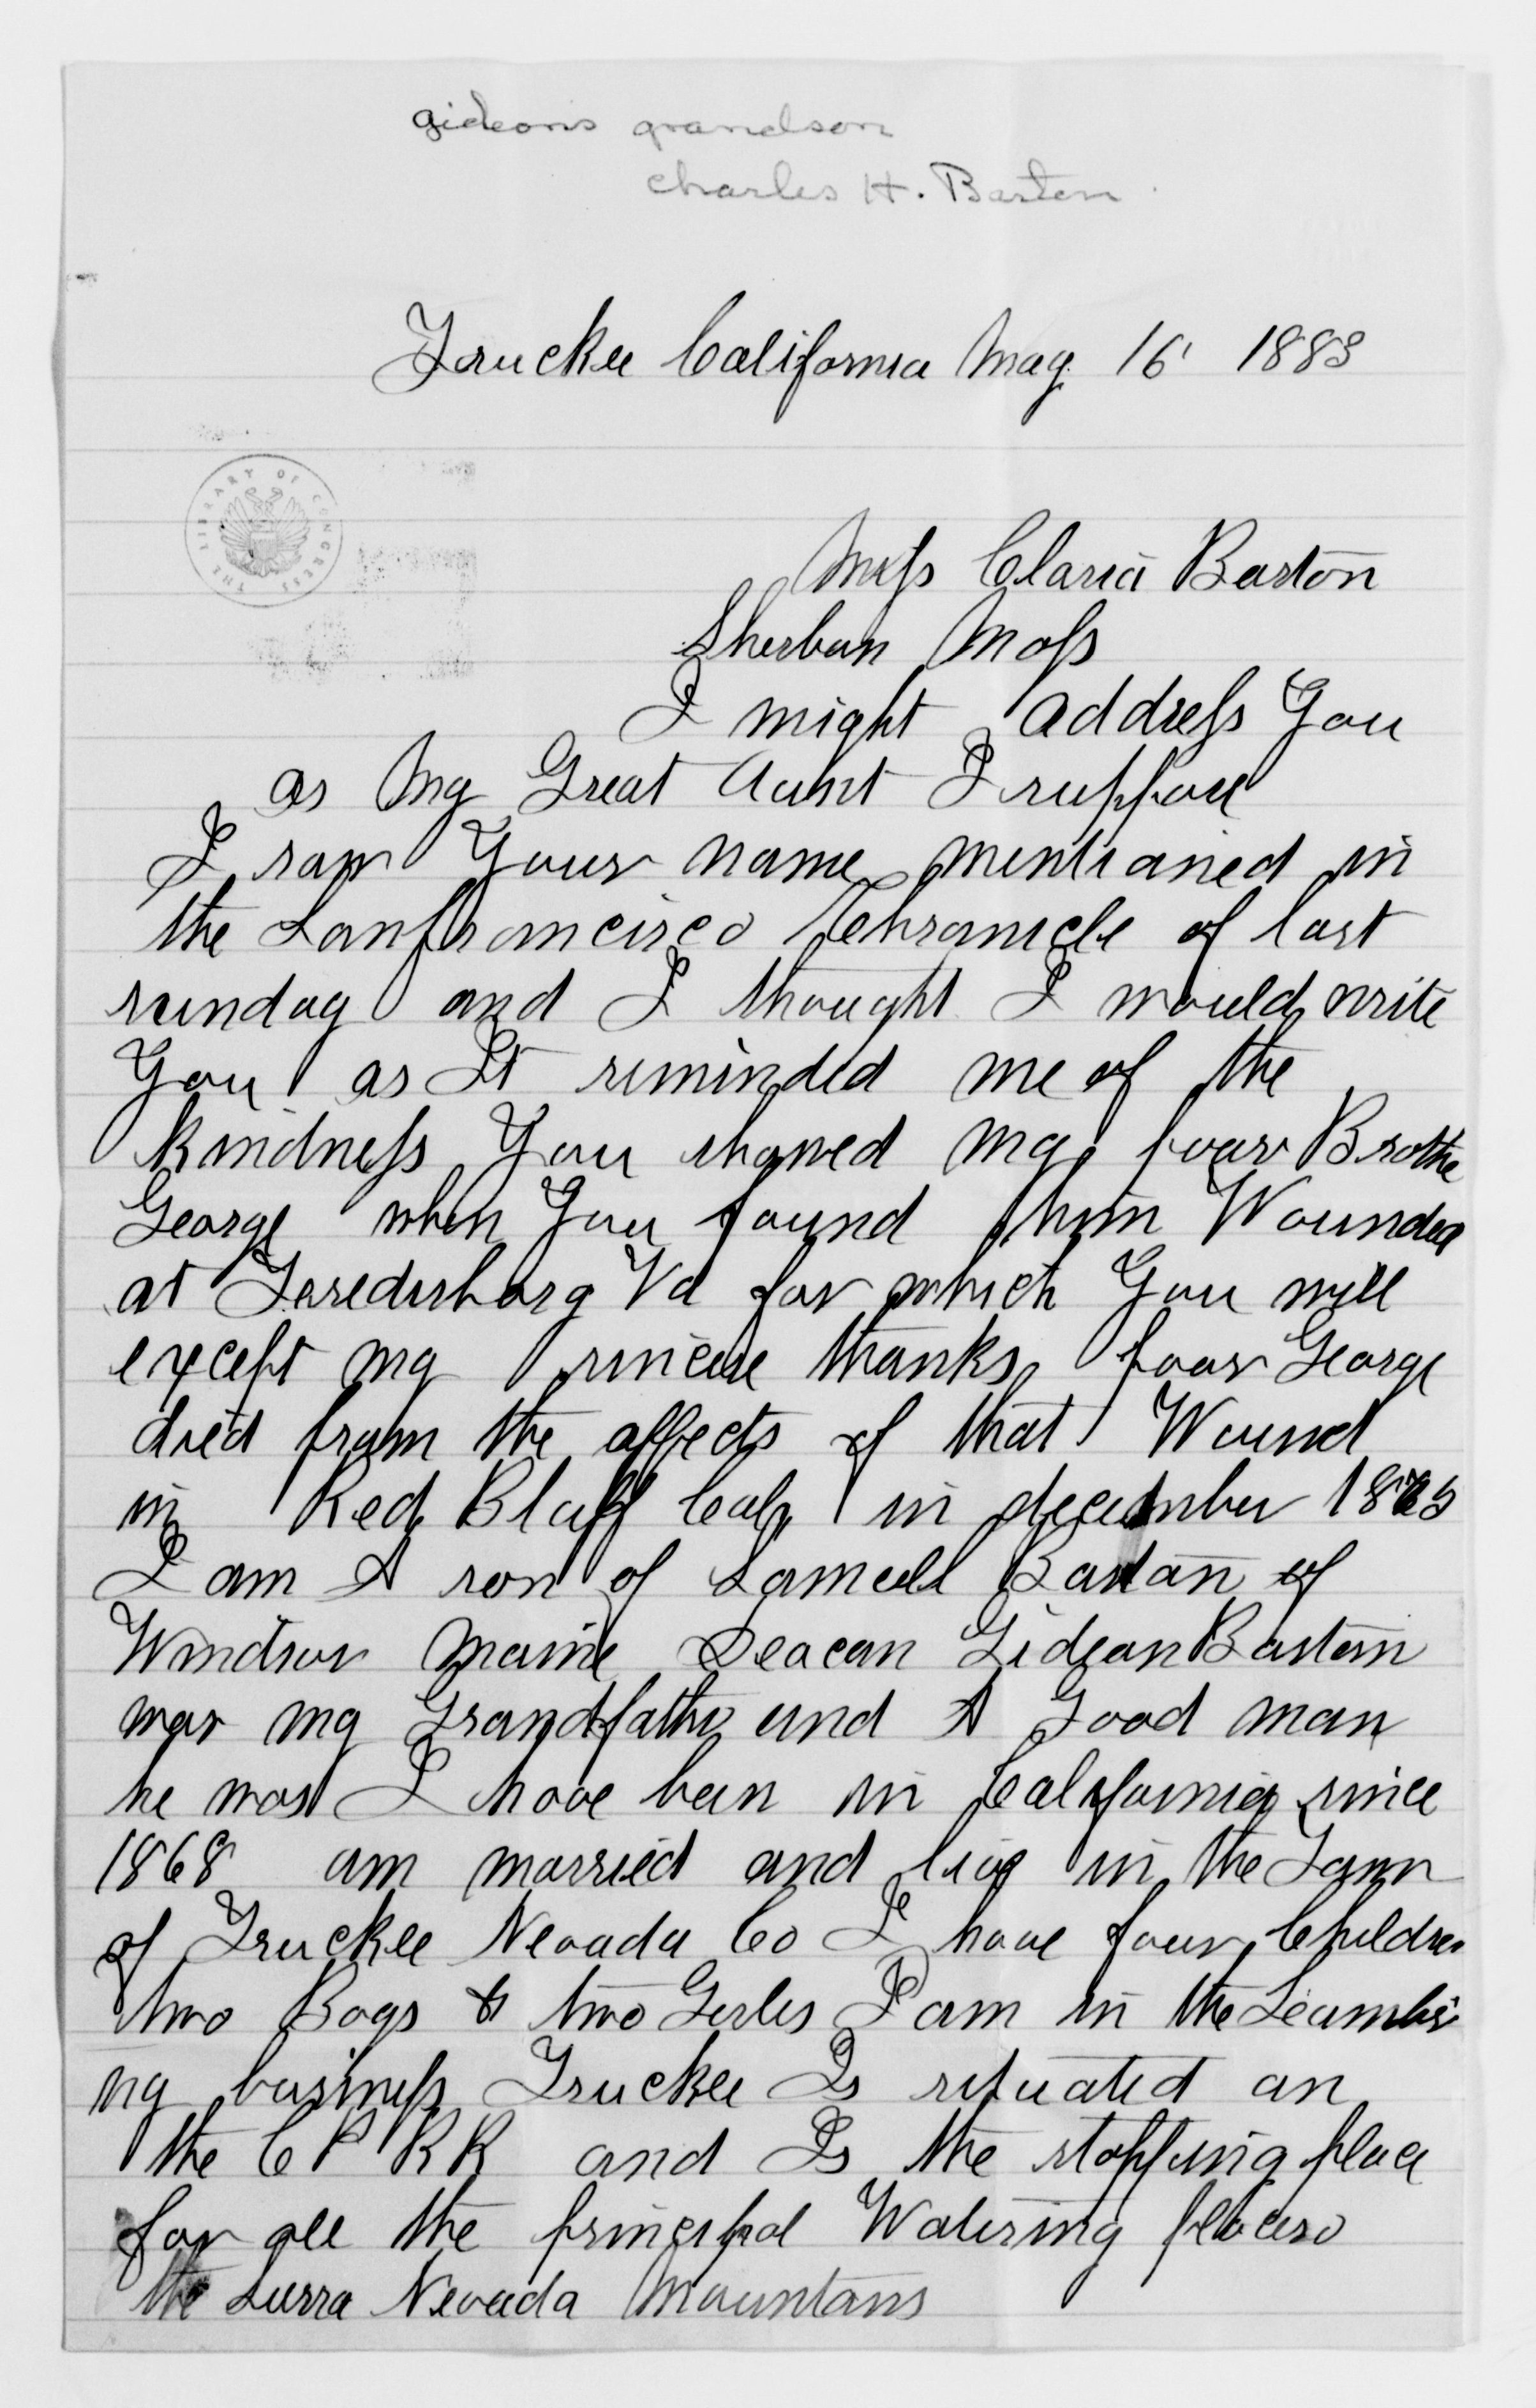 gideons grandson
Charles H. Barton
Truckee California May 16' 1883
THE LIBRARY OF CONGRESS
Miss Claria Barton
Sherban Mass
I might address You
as My Great Aunt I suppose
I saw Your name mentioned in
the Sanfrancisco Chronicle of last
sunday and I thought I would write
You as It reminded me of the
kindness You showed my poor Brothe
George when You found him Wounded
at Feredisburg Va for which You will
except my sincere thanks poor George
died from the affects of that Wound
in Red Bluff Cal in december
I am A son of Samuell Barton of
Windsor Maine Deacon Gideon Barton
was my Grandfather and A Good man
he was I have been in California since
1868 am married and live in the Town
of Truckee Nevada Co I have four Children
two Boys & two Gerles I am in the Leumbri
ng business Truckee Is situated on
the C P R R and Is the stopping place
for all the principal Watering places
the Sierra Nevada Mountans